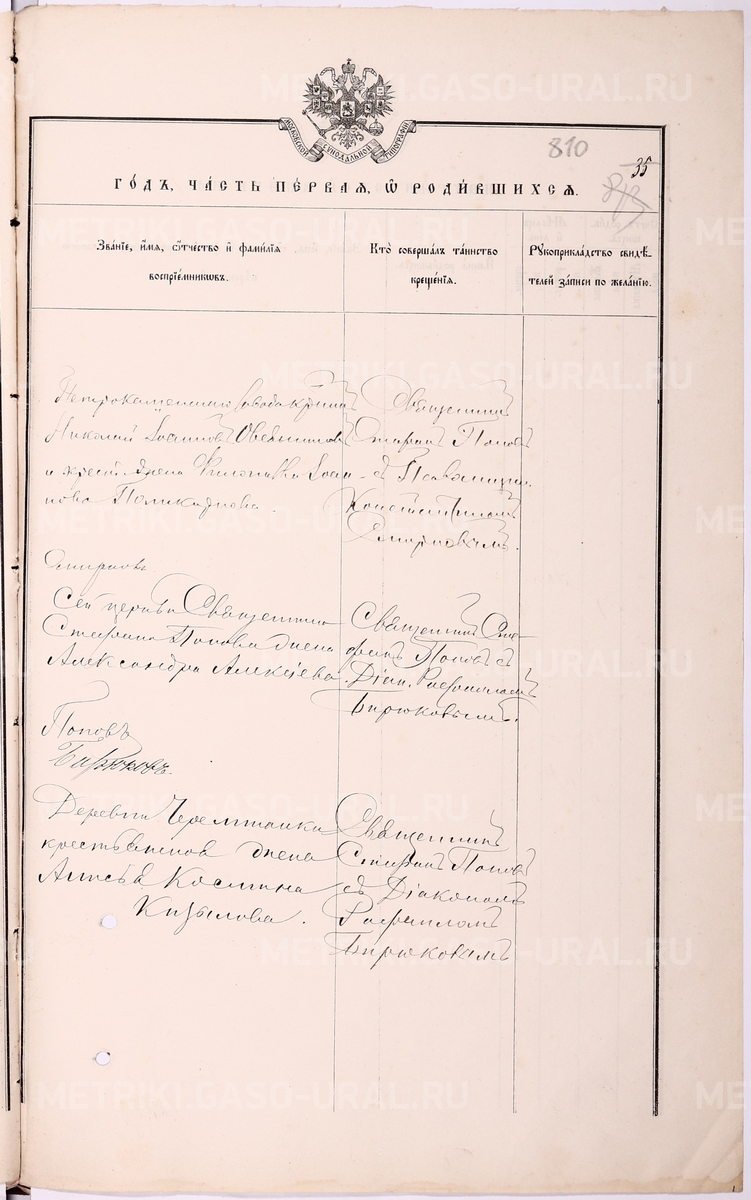 МОСКОВСКОЙ СѴНОДАЛЬНОЙ ТИПОГРАФІИ
810
35
ГО́ДЪ, ЧА́СТЬ ПЕ́РВАЯ, Ѡ҆ РОДИ́ВШИХСЯ.
Зва́нїе, и҆́мя, ѻ҆́тчество и҆ фами́лїя
воспрїе́мникѡвъ.
Кто̀ соверша́лъ та́инство
креще́нїя.
Рꙋкоприкла́дство свидѣ́-
телей за́писи по жела́нїю.
Петрокаменскаго завода крест.
Николай Іоанновъ Овчинниковъ
и крест. жена Іоан-
нова Поликарпова.
Священникъ
Стефанъ Поповъ
съ Псаломщик.
Константиномъ
Смирновымъ.
Смирновъ
Сей церкви Священника
Стефана Попова жена
Александра Алексіева.
Священникъ Сте-
фанъ Поповъ съ
Діак. Рафаиломъ
Бирюковымъ.
Поповъ
Бирюковъ.
Деревни Черемшанки
крестьянина жена
Космина
Кизылова.
Священникъ
Стефанъ Поповъ
съ Діакономъ
Рафаиломъ
Бирюковымъ
METRIKI.GASO-URAL.RU